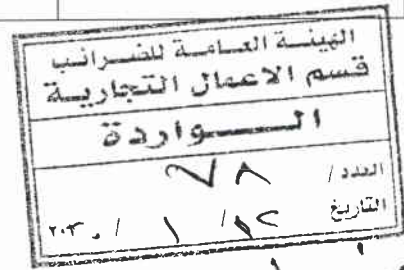 الهيئة العامة للضرائب
قسم الاعمال التجارية
الواردة
العدد / ٧٨
التاريخ / ١ /